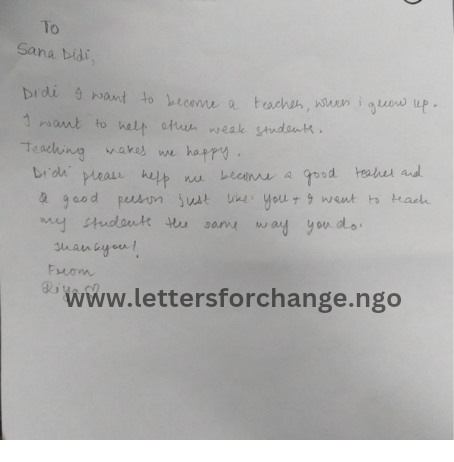 To
Sana Didi,
Didi I want to become a teacher, when i grow up.
I want to help other weak students.
Teaching makes me happy.
Didi please help me become a good teaher and
a good person just like you & I want to teach
my students the same way you do.
Thankyou!
From
Riya ♡
www.lettersforchange.ngo